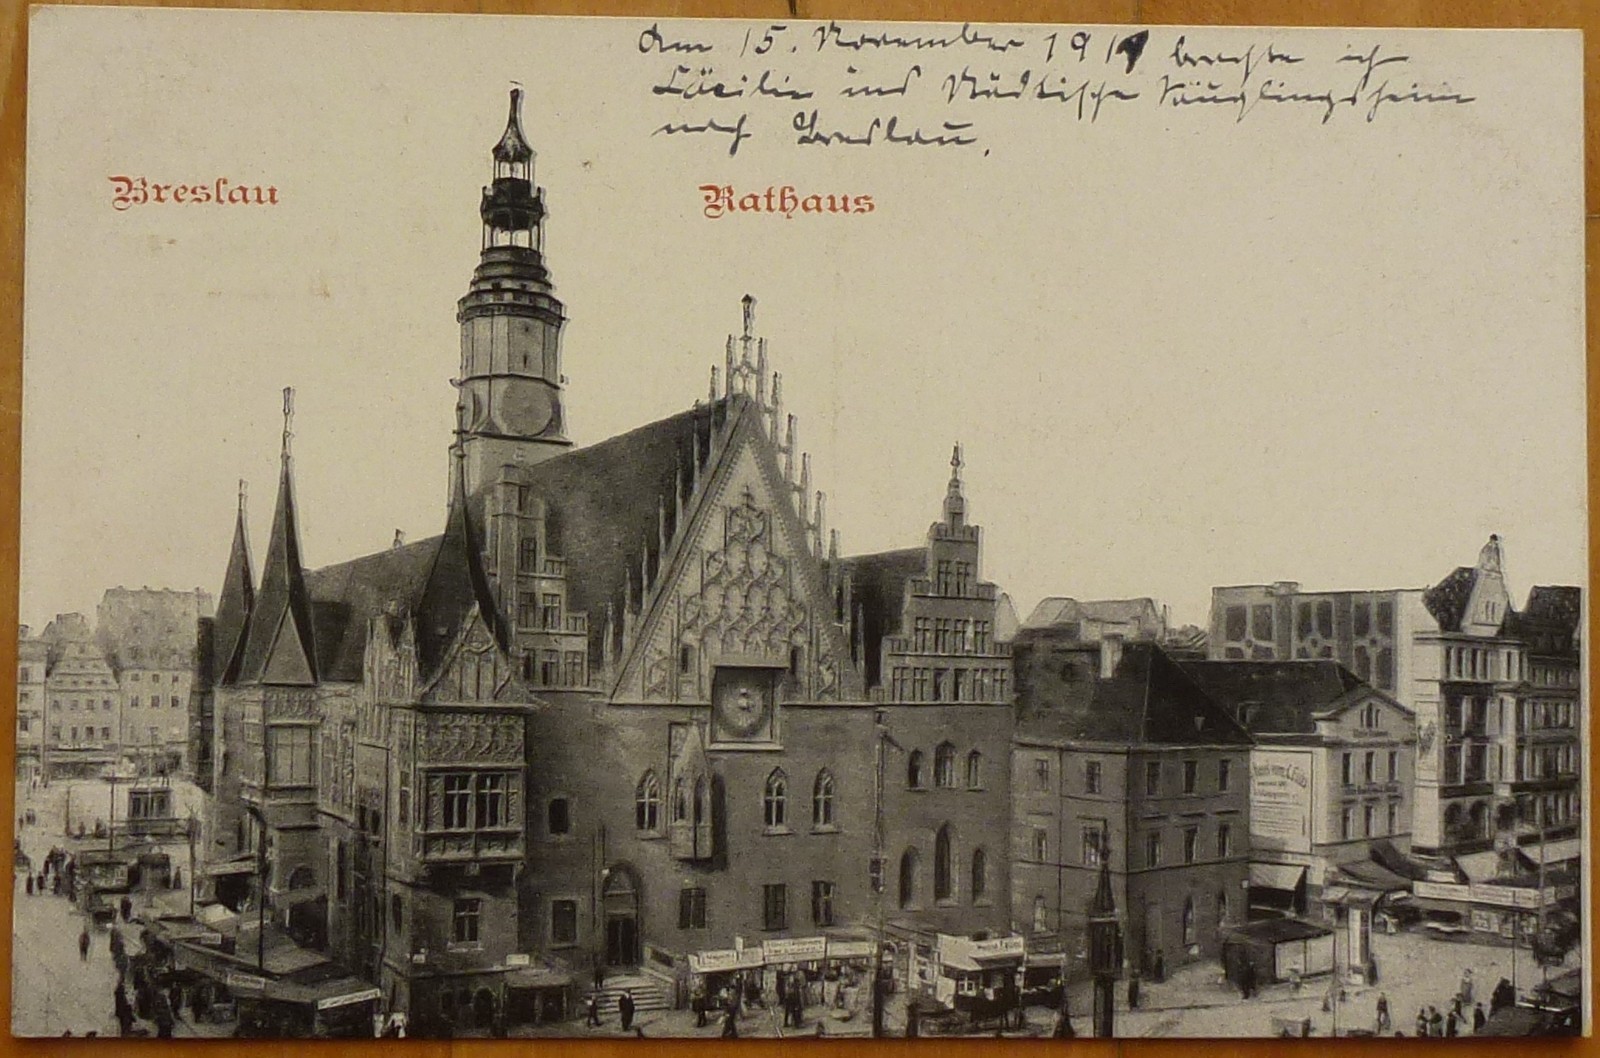 Am 15. November 1911 brachte ich
Cäcilie ins Städtische Säuglingsheim
nach Breslau.
Breslau
Rathaus